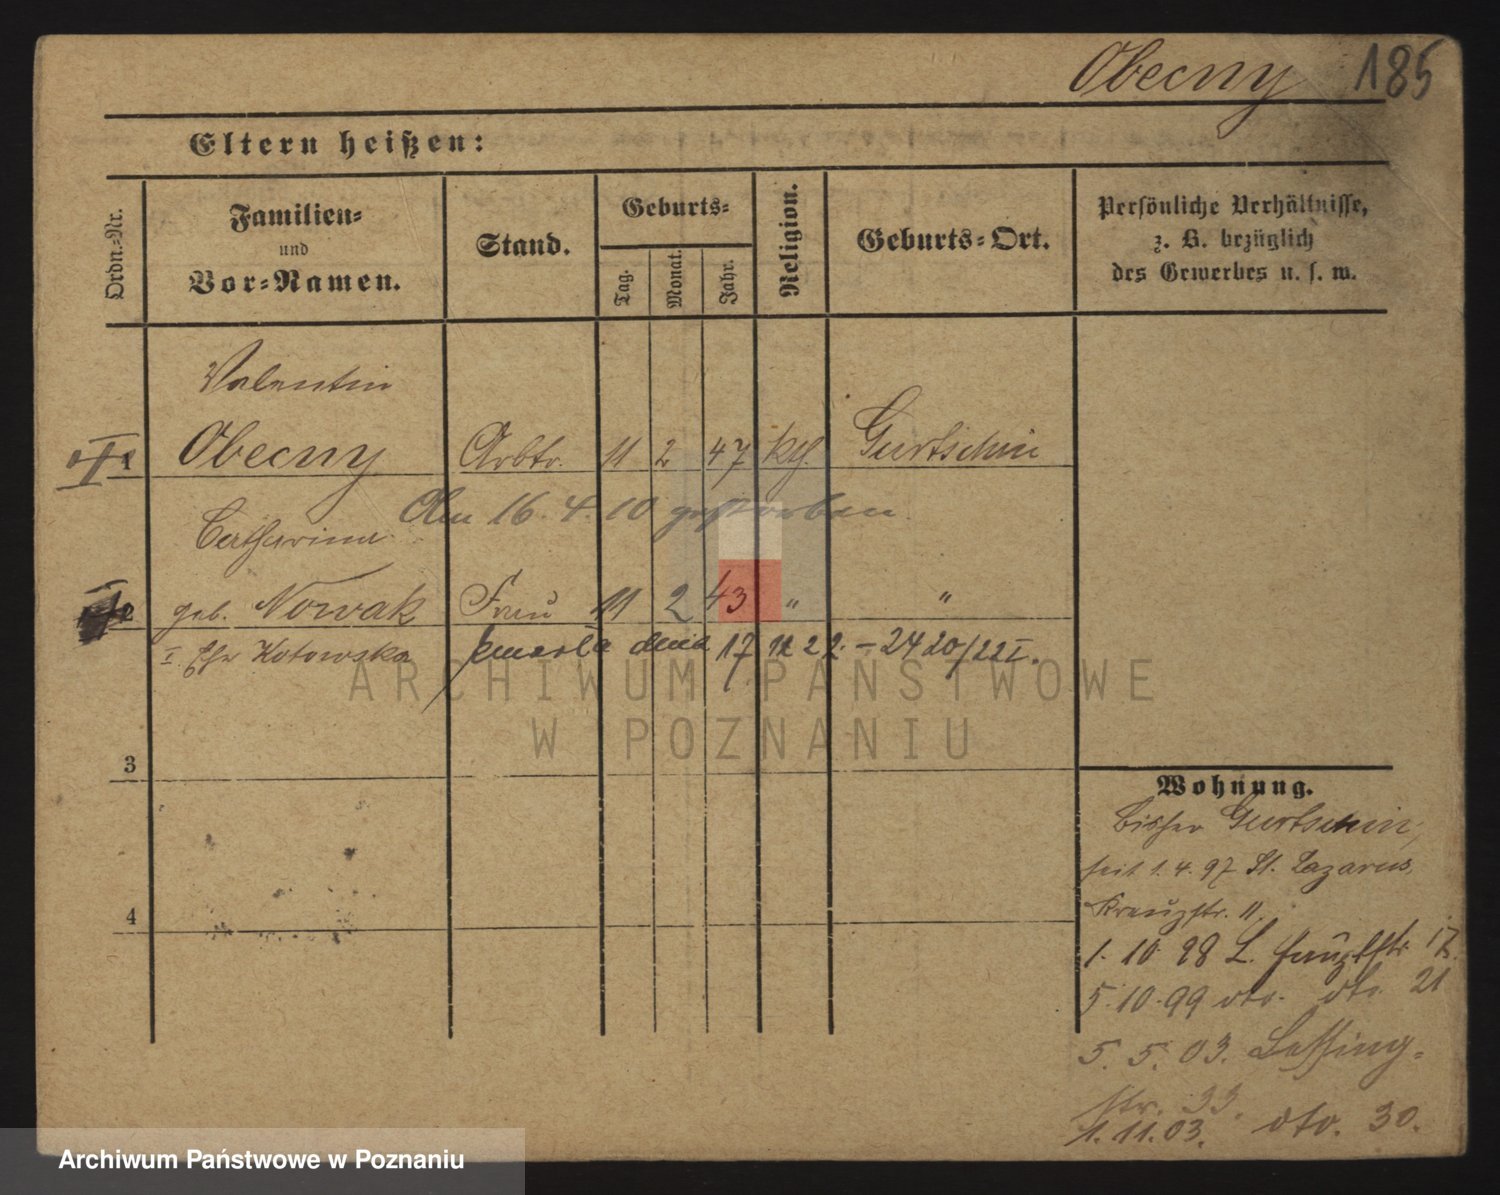 Obecny 185
Eltern heißen:
Ordn.-Nr.
Familien-
und
Vor-Namen.
Stand.
Geburts-
Tag.
Monat.
Jahr.
Religion.
Geburts-Ort.
Persönliche Verhältnisse,
z. B. bezüglich
des Gewerbes u. s. w.
Valentin
1 Obecny Arbtr. 11 2 47 kth. Gurtschin
Am 16. 4. 10 gestorben.
Catharina
2 geb. Nowak Frau 11 2 43 " "
I. Ehe Kotowska zmarła dnia 17 11 22. - 2420/22 I.
ARCHIWUM PAŃSTWOWE
W POZNANIU
3
4
Wohnung.
bisher Gurtschin,
seit 1. 4. 97 St. Lazarus,
Kreuzstr. 11.
1. 10 98 L. Hauptstr. 17.
5. 10. 99 dto. dto. 21
5. 5. 03. Lessing-
str. 33.
1. 11. 03. dto. 30.
Archiwum Państwowe w Poznaniu